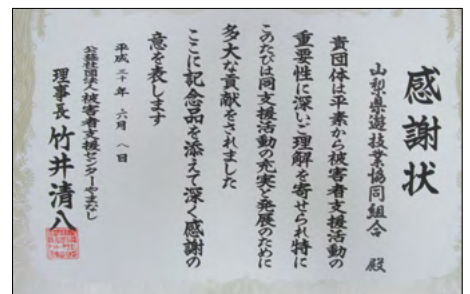 感謝状
山梨県遊技業協同組合 殿
貴団体は平素から被害者支援活動の
重要性に深いご理解を寄せられ特に
このたびは同支援活動の充実と発展のために
多大な貢献をされました
ここに記念品を添えて深く感謝の
意を表します
平成三十年 六月 八日
公益社団法人被害者支援センターやまなし
理事長 竹井清八